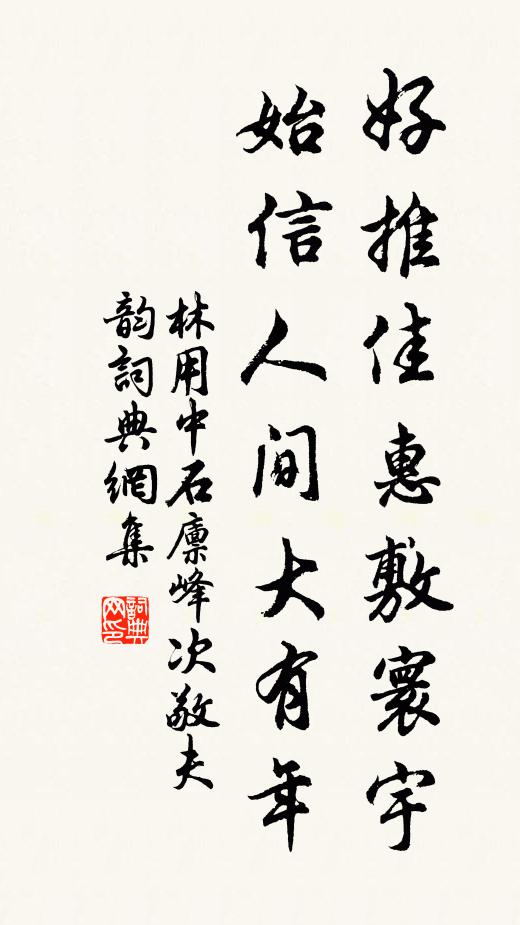 好推佳惠敷寰宇
始信人間大有年
林用中石廩峰次敬夫
韵詞典網集
詞典网印